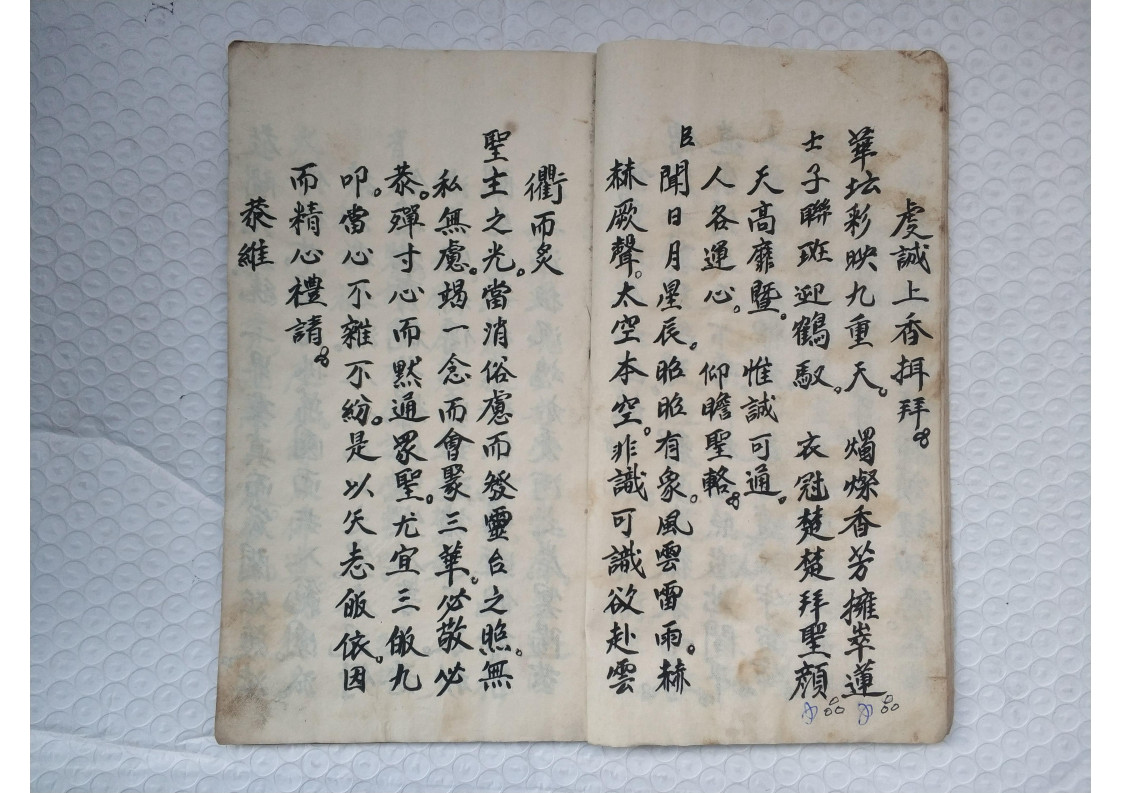 虔誠上香揖拜。
華坛彩映九重天。燭燦香芳擁翠蓮
士子聯班迎鶴馭。衣冠楚楚拜聖顏
天高靡曁。惟誠可通。
人各運心。仰瞻聖輅。
臣聞日月星辰。昭昭有象。風雲雷雨。赫
赫厥聲。太空本空。非識可識欲赴雲
衢而炙
聖主之光。當消俗慮而發靈台之照。無
私無慮。竭一念而會聚三華。必敬必
恭。殫寸心而默通眾聖。尤宜三皈九
叩。當心不雜不紛。是以矢志皈依。因
而精心禮請。
恭維